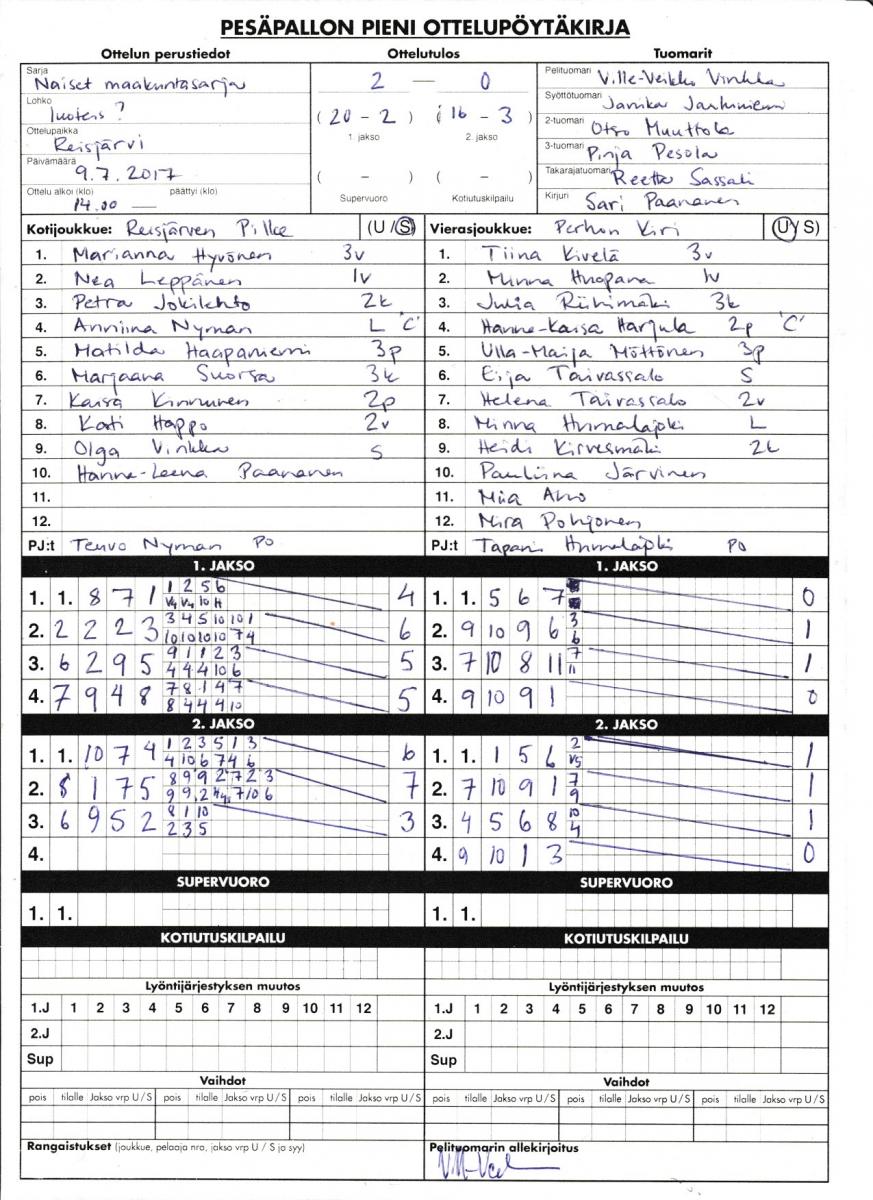 PESÄPALLON PIENI OTTELUPÖYTÄKIRJA
Ottelun perustiedot Ottelutulos Tuomarit
Sarja Naiset maakuntasarja
Lohko luoteis?
Ottelupaikka Reisjärvi
Päivämäärä 9.7.2017
Ottelu alkoi (klo) päättyi (klo)
14.00 —
2 — 0
(20 - 2) (16 - 3)
1. jakso 2. jakso
( - ) ( - )
Supervuoro Kotiutuskilpailu
Pelituomari Ville-Veikko Vinkka
Syöttötuomari Janika
2-tuomari Otso Muuttola
3-tuomari Pinja Pesola
Takarajatuomari Reetta Sassali
Kirjuri Sari Paananen
Kotijoukkue: Reisjärven Pilke (U / S)
1. Marianna Hyvönen 3v
2. Nea Leppänen 1v
3. Petra Jokilehto 2k
4. Anniina Nyman L 'C'
5. Matilda Haapaniemi 3p
6. Marjaana Suorsa 3k
7. Kaisa Kinnunen 2p
8. Kati Happo 2v
9. Olga Vinkka S
10. Hanne-Leena Paananen
11.
12.
PJ:t Teuvo Nyman PO
Vierasjoukkue: Perhon Kiri (U / S)
1. Tiina Kivelä 3v
2. Minna Huopana 1v
3. Julia Riihimäki 3k
4. Hanne-Kaisa Harjula 2p 'C'
5. Ulla-Maija Möttönen 3p
6. Eija Taivassalo S
7. Helena Taivassalo 2v
8. Minna Humalajoki L
9. Heidi Kirvesmäki 2k
10. Pauliina Järvinen
11. Miia Arvo
12. Mira Pohjonen
PJ:t Tapani Humalajoki PO
1. JAKSO
1. 1. 8 7 1 1 2 5 6 4
10 H
2. 2 2 2 3 3 4 5 10 10 1 6
10 10 10 10 7 4
3. 6 2 9 5 9 1 1 2 3 5
4 4 4 10 6
4. 7 9 4 8 7 8 1 4 7 5
8 4 4 4 10
1. JAKSO
1. 1. 5 6 7 0
2. 9 10 9 6 3 1
6
3. 7 10 8 11 7 1
11
4. 9 10 9 1 0
2. JAKSO
1. 1. 10 7 4 1 2 3 5 1 3 6
4 10 6 7 4 6
2. 8 1 7 5 8 9 9 2 7 2 3 7
9 9 2 H4 7 10 6
3. 6 9 5 2 8 1 10 3
2 3 5
4.
2. JAKSO
1. 1. 1 5 6 2 1
V5
2. 7 10 9 1 7 1
9
3. 4 5 6 8 10 1
4
4. 9 10 1 3 0
SUPERVUORO SUPERVUORO
1. 1. 1. 1.
KOTIUTUSKILPAILU KOTIUTUSKILPAILU
Lyöntijärjestyksen muutos Lyöntijärjestyksen muutos
1.J 1 2 3 4 5 6 7 8 9 10 11 12 1.J 1 2 3 4 5 6 7 8 9 10 11 12
2.J 2.J
Sup Sup
Vaihdot Vaihdot
pois tilalle Jakso vrp U / S pois tilalle Jakso vrp U / S pois tilalle Jakso vrp U / S pois tilalle Jakso vrp U / S pois tilalle Jakso vrp U / S pois tilalle Jakso vrp U / S
Rangaistukset (joukkue, pelaaja nro, jakso vrp U / S ja syy) Pelituomarin allekirjoitus